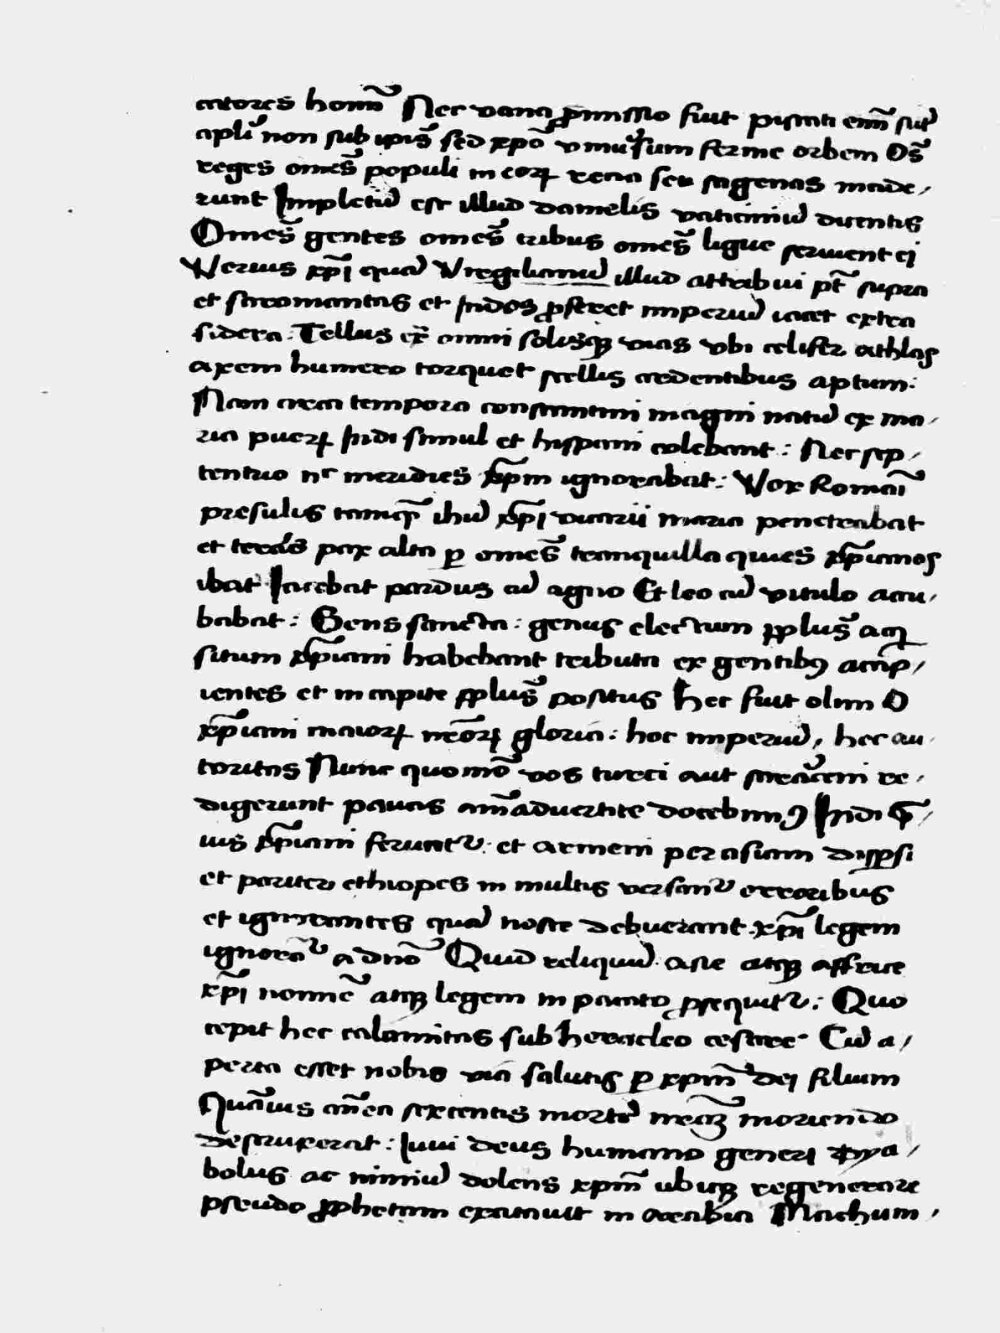 catores homĩ Nec vana ꝓmissio fuit piscati enĩ sũt
apl̃i non sub ip̃is sed xp̃o vniũsum ferme orbem Om̃s
reges om̃es populi in eoꝝ recia seu sagenas inde,
runt Impletũ est illud danielis vaticiniũ dicentis
Om̃es gentes om̃es tribus om̃es ligue seruient ei
Verius xp̃i quã Vregilianũ illud attribui pt̃ supra
et garomantas et Indos ꝓferet imperiũ iacet extra
sidera. Tellus ex̃ anni solisqꝫ vias vbi celifer athlas
axem humero torquet stellis ardentibus aptum:
Nam circa tempora constantini magni natũ ex ma,
ria pueꝝ Indi simul et hispani colebant: Nec sep,
tentrio nᶜ meridies xp̃m ignorabat: Vox Romãi
presulis tamqꝫ ihũ xp̃i vicarii maria penetrabat
et terãs pax alta ꝑ om̃es tranquilla quies xp̃ianos
ibat Iacebat pardus cũ agno Et leo cũ vitulo accu,
babat: Gens sancta: genus electum pp̃lus acq̃
situm xp̃iani habebant tributa ex gentibꝯ accip̃,
ientes et in capite pp̃lus positus Hec fuit olim O
xp̃iani maioꝝ nr̃oꝝ gloria: hoc imperiũ, hec au,
toritas Nunc quomõ vos turci aut saraceni re,
digerunt paucis aĩaduertite docebimꝯ Indi g̃,
uis xp̃iani feruntᷣ: et armeni per asiam disp̃si
et pariter ethiopes in multis versantᷣ erroribus
et ignorantes quã nosse debuerant xp̃i legem
ignorãtᷣ a dnõ Quid reliquũ asie atqꝫ affrice
xp̃i nomẽ atqꝫ legem in pacato ꝓsequitᷣ: Quo
cepit hec calamitas sub Heracleo cesare. Cũ a,
perta esset nobis via salutis ꝑ xp̃m dei filium
Quãuis añ ea sexcentis mortẽ nr̃aꝫ moriendo
destruxerat: Iuui deus humano generi dya,
bolus ac nimiũ dolens xp̃m ubiqꝫ regenerare
pseudo ꝓphetam excitauit in arabia Machum,